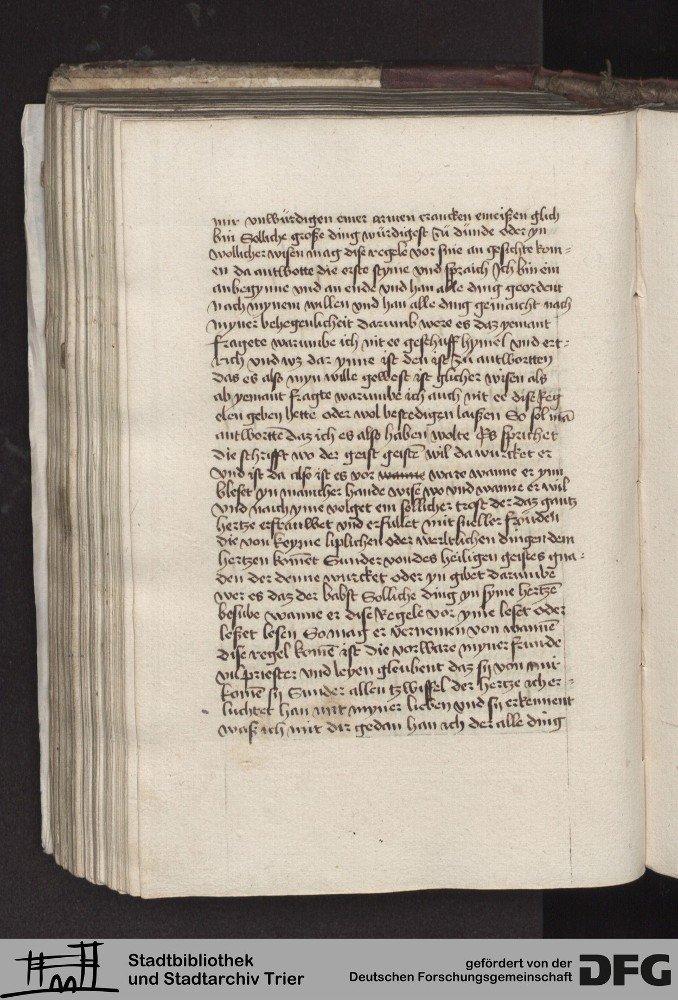 mir vnwürdigen einer armen crancken emeißen glich
bin Solliche große ding würdigest zü dünde oder yn
wollicher wisen mag dise regele vor sine an gesichte kom=
en da antwotte die erste styme vnd spraich Jch bin ein
anbegynne vnd an ende vnd han alle ding geordent
nach mynem willen vnd han alle ding gemaicht nach
myner behegenlicheit darumb were es daz yemant
fragete warumbe ich nit ee geschüff hymel vnd ert=
rich vnd wz dar ynne ist den ist zü antwortten
das es also myn wille gewest ist glicher wisen als
ab yemant fragte warumbe ich auch nit ee dise Reg
elen geben hette oder wol bestedigen laißen So sol mā
antwortē daz ich es also haben wolte Es sprichet
die schrifft wo der geist geistē wil da wurcket er
vnd ist da also ist es vor wanne ware wanne er ynn
bleset yn mancher hande wise wo vnd wanne er wil
vnd naich yme volget ein sollicher trost der daz gantz
hertze erfrauwet vnd erfullet mit sneller fräuden
die von keyme liplichen oder werltlichen dingen dem
hertzen komēt Sunder von des heiligen geistes gna=
den der denne wurcket oder yn gibet darumbe
wer es daz der babst Solliche ding yn syme hertzē
besübe wanne er dise Regele vor yme leset oder
leßet lesen So mag er vernemen von wannē
dise regel komē ist die vorware myner frunde
vil priester vnd leyen gleubent daz sij von mir
komē sij Sunder allen tzwiffel der hertze ich er=
luchtet han mit myner lieben vnd sij erkennent
waß ich mit dir gedan han ich der alle ding
Stadtbibliothek
und Stadtarchiv Trier
gefördert von der
Deutschen Forschungsgemeinschaft
DFG